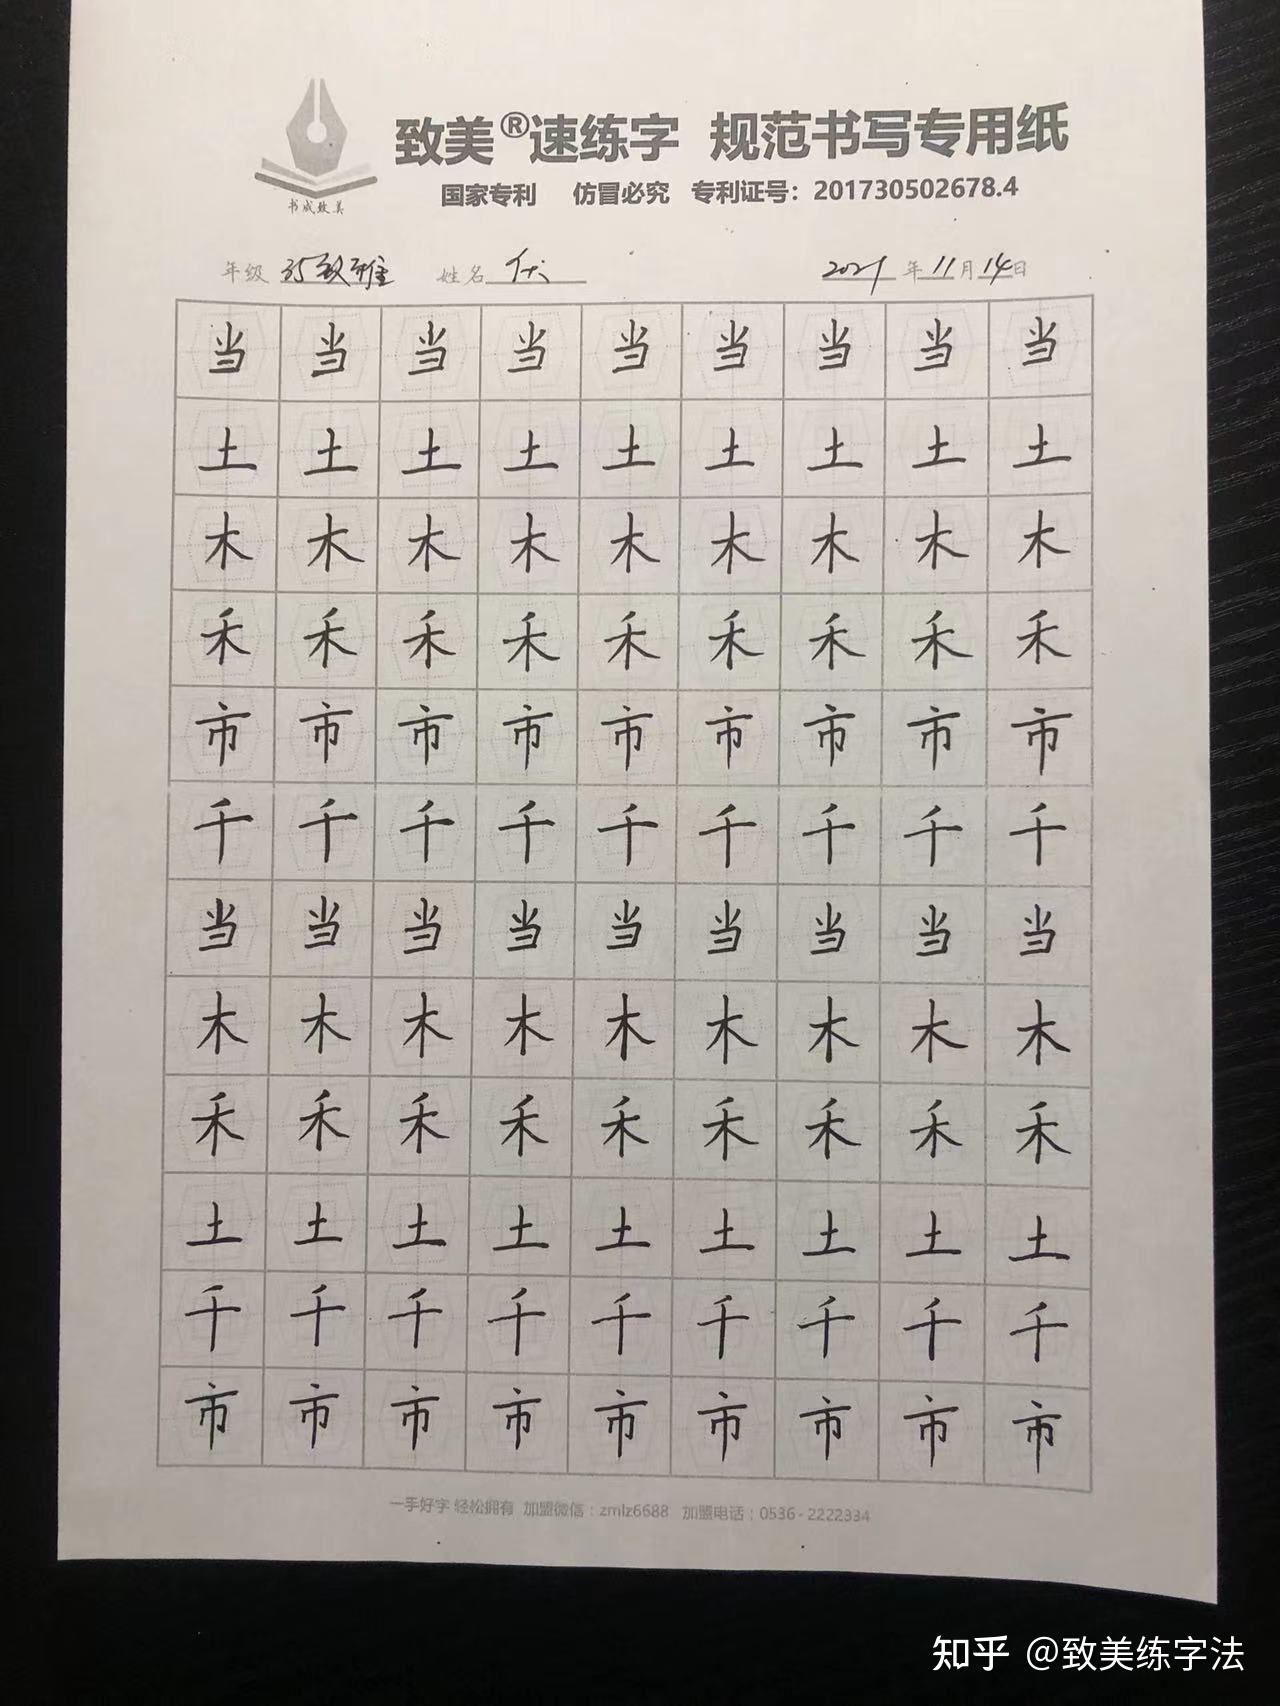 致美®速练字 规范书写专用纸
国家专利 仿冒必究 专利证号：201730502678.4
书成致美
年级 35致雅 姓名 2021年11月14日
当当当当当当当当当
土土土土土土土土土
木木木木木木木木木
禾禾禾禾禾禾禾禾禾
市市市市市市市市市
千千千千千千千千千
当当当当当当当当当
木木木木木木木木木
禾禾禾禾禾禾禾禾禾
土土土土土土土土土
千千千千千千千千千
市市市市市市市市市
一手好字 轻松拥有 加盟微信：zmlz6688 加盟电话：0536-2222334
知乎 @致美练字法